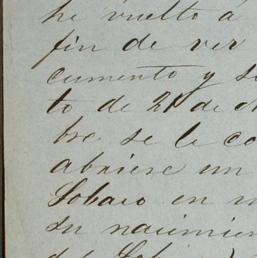 he vuelto á
fin de ver
cumento y si
to de 21 de
bre se le co
abriese un
en
su nacimien